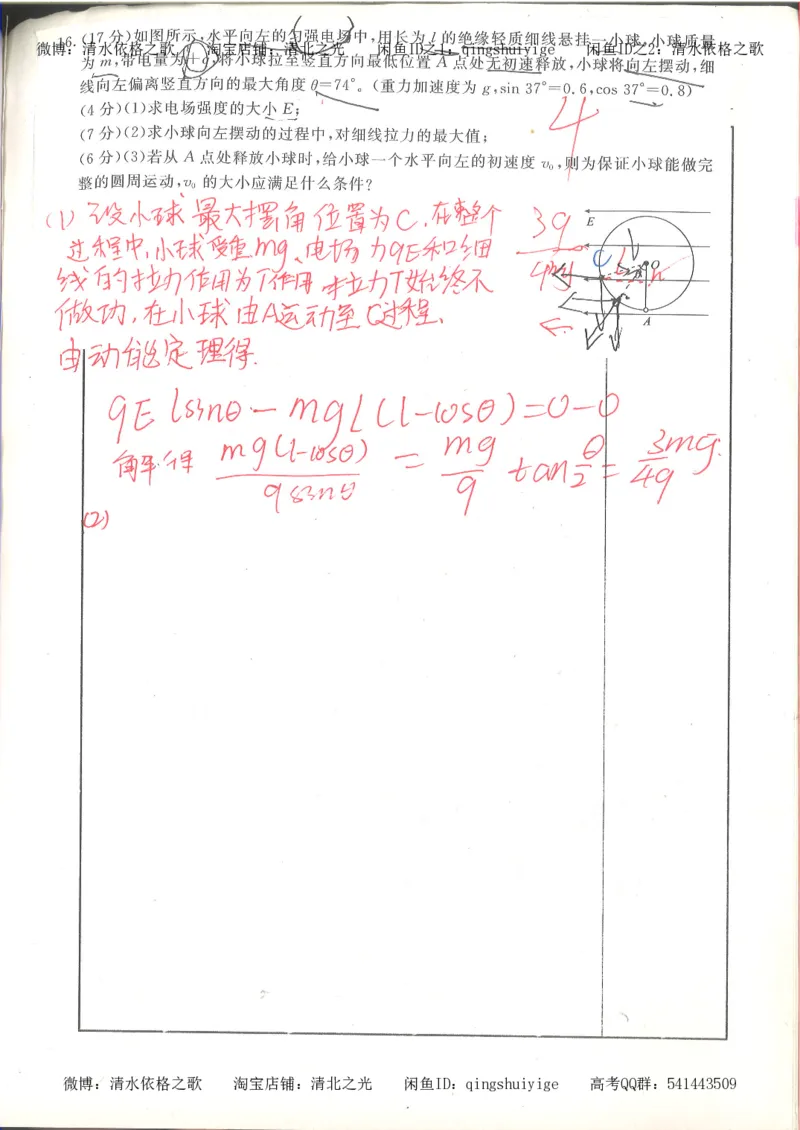 16.(17分)如图所示,水平向左的匀强电场中,用长为l的绝缘轻质细线悬挂一小球,小球质量
微博:清水依格之歌 淘宝店铺:清北之光 闲鱼ID之1:qingshuiyige 闲鱼ID之2:清水依格之歌
为m,带电量为+q,将小球拉至竖直方向最低位置A点处无初速释放,小球将向左摆动,细
线向左偏离竖直方向的最大角度θ=74°。(重力加速度为g,sin 37°=0.6,cos 37°=0.8)
(4分)(1)求电场强度的大小E;
(7分)(2)求小球向左摆动的过程中,对细线拉力的最大值;
(6分)(3)若从A点处释放小球时,给小球一个水平向左的初速度v₀,则为保证小球能做完
整的圆周运动,v₀的大小应满足什么条件?
4
(1)设小球最大摆角位置为C,在整个
过程中,小球受重mg、电场力qE和细
线的拉力作用为T作用,拉力T始终不
做功,在小球由A运动至C过程,
由动能定理得.
E
C
O
A
qElsinθ-mgl(1-cosθ)=0-0
解得 mg(1-cosθ)/qsinθ = mg/q tan θ/2 = 3mg/4q.
(2)
微博:清水依格之歌 淘宝店铺:清北之光 闲鱼ID:qingshuiyige 高考QQ群:541443509